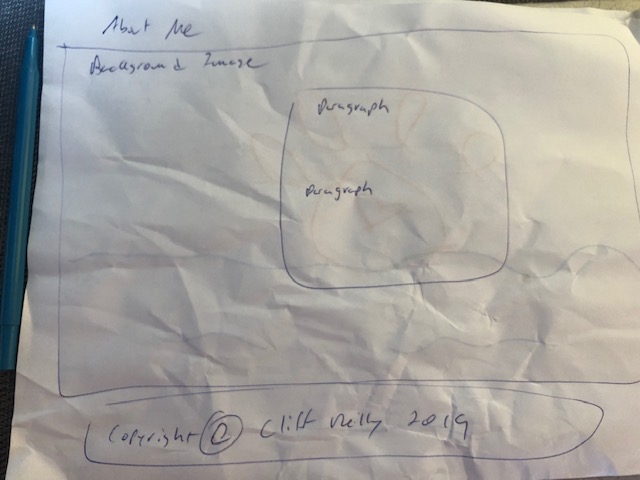 About Me
Background Image
Paragraph
Paragraph
Copyright © Cliff Reilly 2019